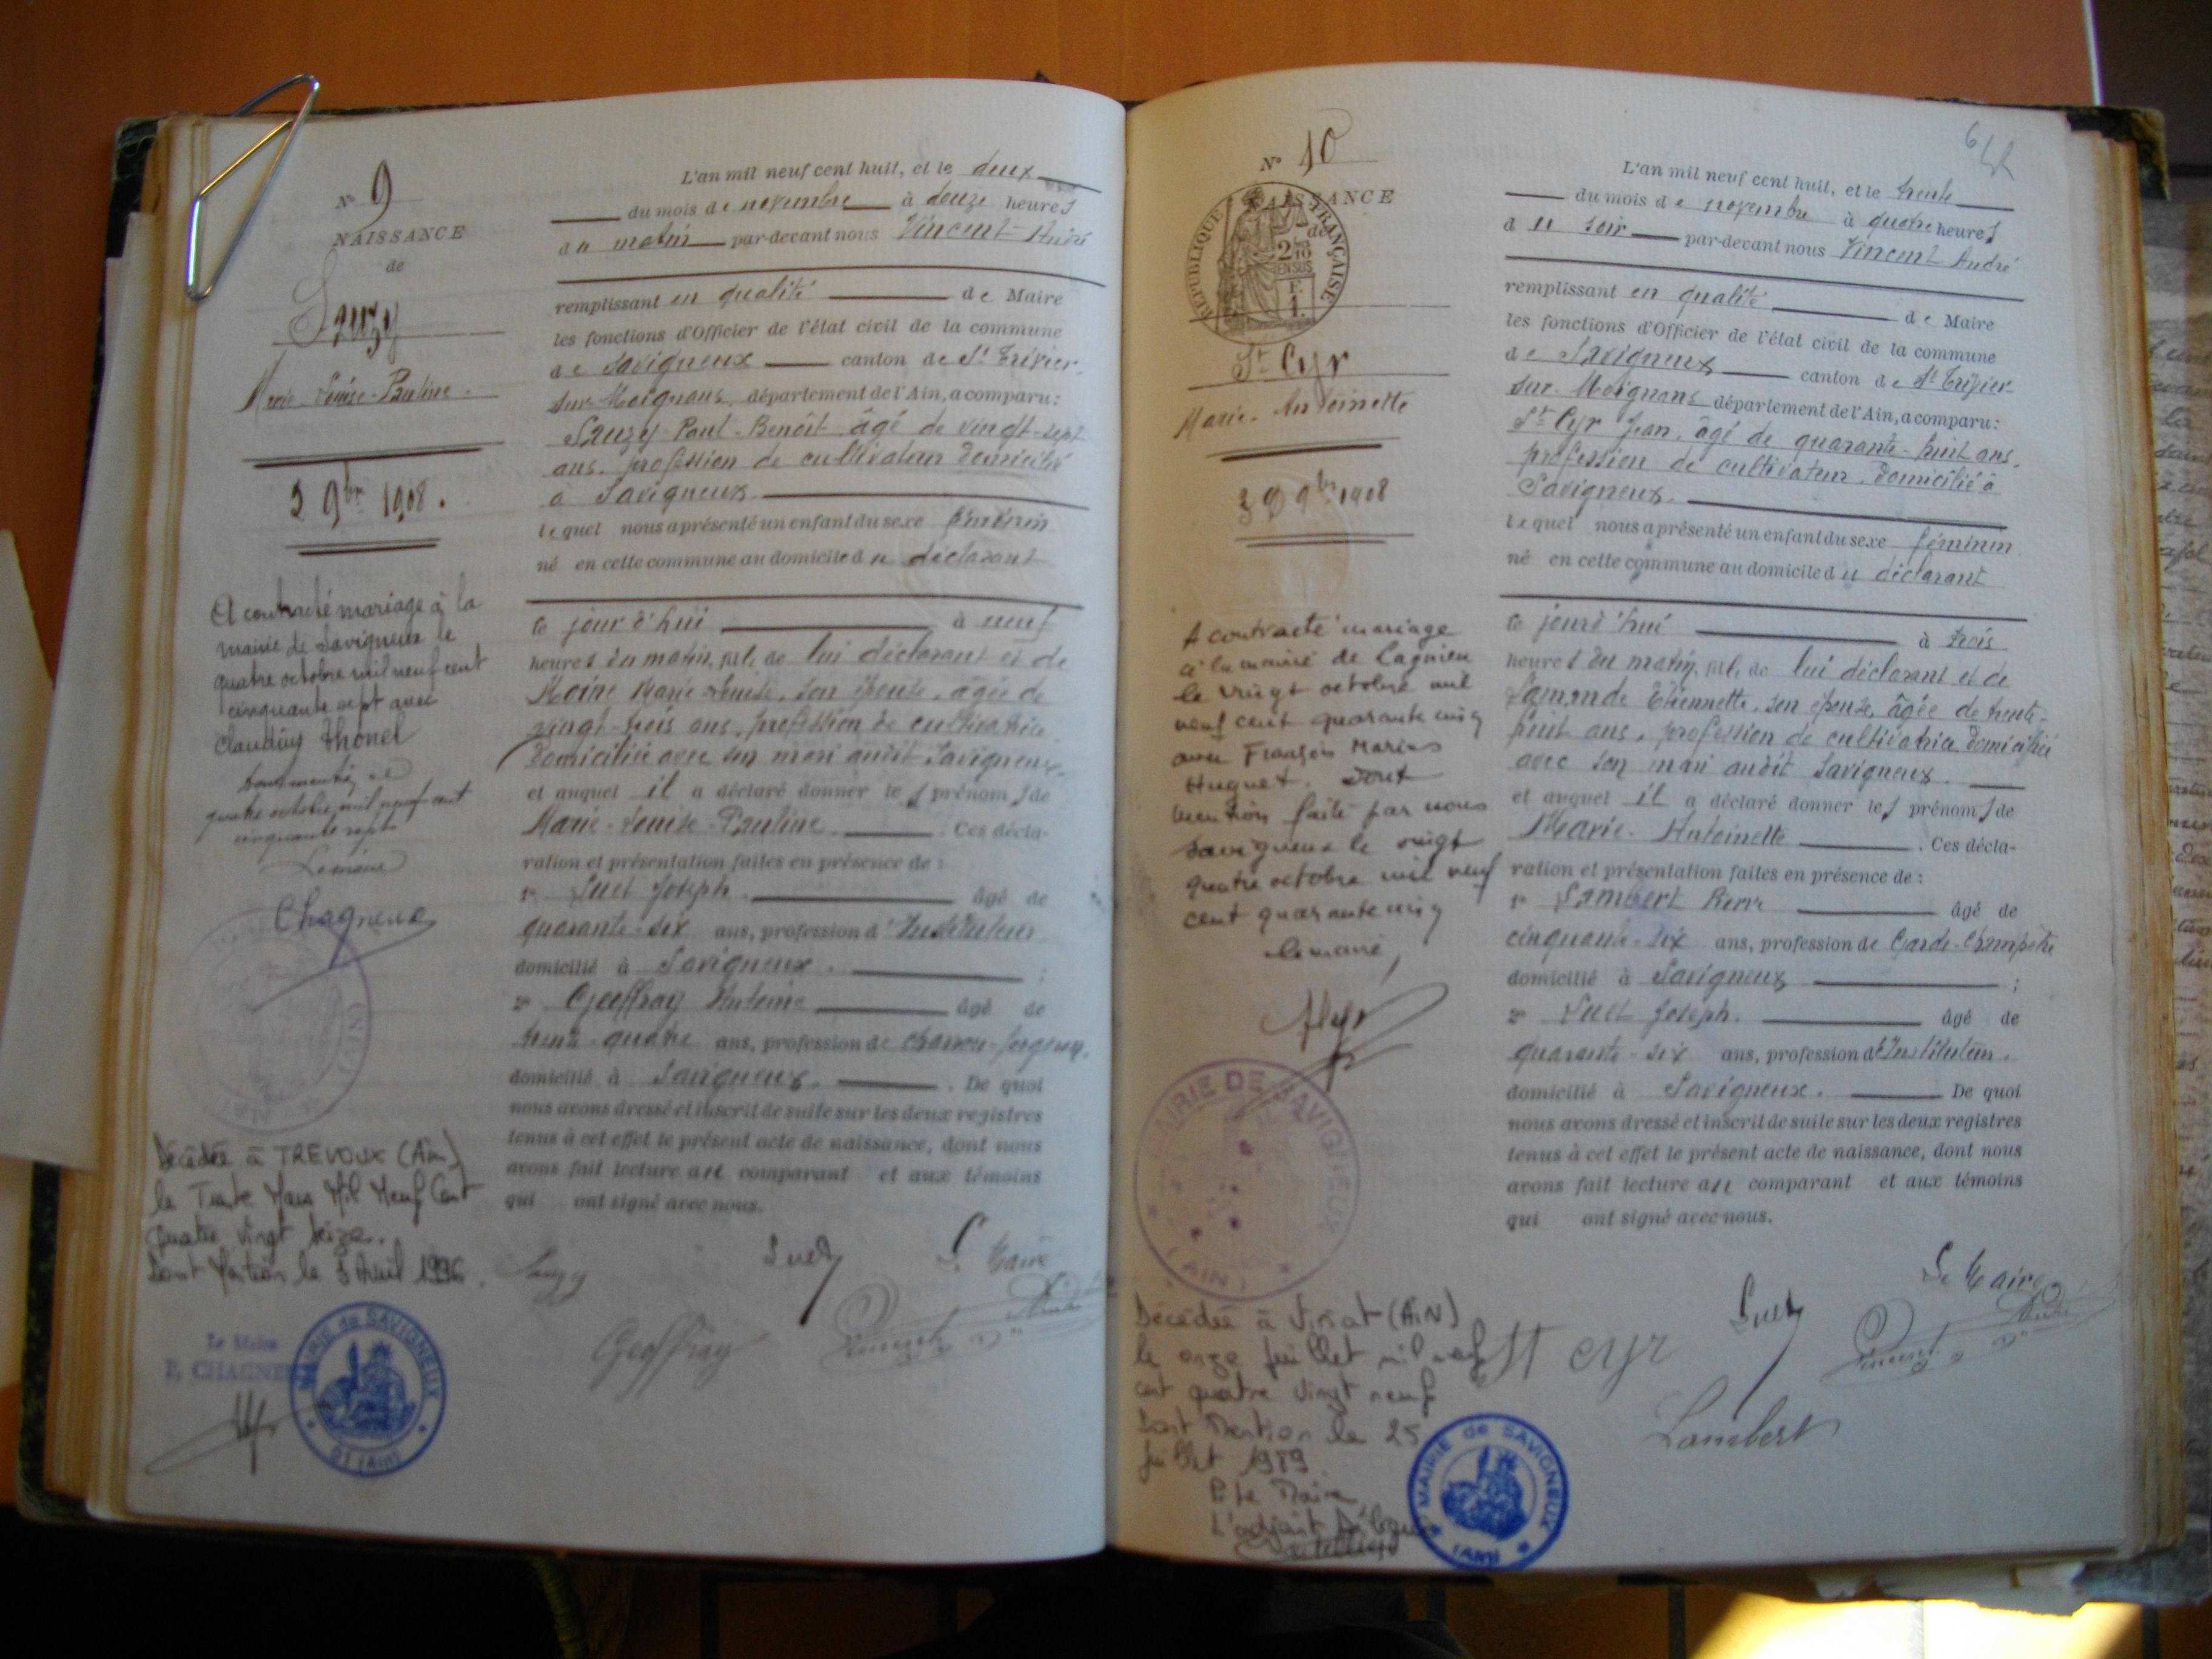 N° 9
NAISSANCE
de
Sauzy
Marie-Louise-Pauline.
2 9bre 1908.
A contracté mariage à la
mairie de Savigneux le
quatre octobre mil neuf cent
cinquante sept avec
Claudius Thonel
quatre octobre mil neuf cent
cinquante sept
Le maire
Chagneux
Décédée à TREVOUX (Ain)
le Trente Mars Mil Neuf Cent
Quatre Vingt Seize.
Dont Mention le 3 Avril 1996.
Le Maire
MAIRIE de SAVIGNEUX
01 (Ain)
L'an mil neuf cent huit, et le deux
du mois de novembre à douze heures
du matin par-devant nous Vincent André
remplissant en qualité de Maire
les fonctions d'Officier de l'état civil de la commune
de Savigneux canton de St Trivier-
sur-Moignans, département de l'Ain, a comparu:
Sauzy Paul-Benoît âgé de vingt-sept
ans, profession de cultivateur domicilié
à Savigneux
lequel nous a présenté un enfant du sexe féminin
né en cette commune au domicile du déclarant
ce jourd'hui à neuf
heures du matin, fils de lui déclarant et de
Moine Marie-Louise, son épouse, âgée de
vingt-trois ans, profession de cultivatrice
domiciliée avec son mari audit Savigneux.
et auquel il a déclaré donner les prénoms de
Marie-Louise-Pauline. Ces décla-
ration et présentation faites en présence de:
1° Suet Joseph. âgé de
quarante-six ans, profession d'Instituteur
domicilié à Savigneux. ;
2° Geoffray Antoine âgé de
trente-quatre ans, profession de charron-forgeron,
domicilié à Savigneux. De quoi
nous avons dressé et inscrit de suite sur les deux registres
tenus à cet effet le présent acte de naissance, dont nous
avons fait lecture au comparant et aux témoins
qui ont signé avec nous.
Sauzy Suet Le Maire
Geoffray Vincent André
N° 10
NAISSANCE
de
RÉPUBLIQUE FRANÇAISE
2/10 EN SUS
F. 1.
St Cyr
Marie-Antoinette
30 9bre 1908
A contracté mariage
à la mairie de Lagnieu
le vingt octobre mil
neuf cent quarante cinq
avec François Marius
Huguet. Dont
mention faite par nous
Savigneux le vingt
quatre octobre mil neuf
cent quarante cinq
le maire,
MAIRIE DE SAVIGNEUX
(AIN)
Décédée à Viriat (AIN)
le onze juillet mil neuf
cent quatre vingt neuf
Dont Mention le 25
juillet 1989
P. Le Maire
L'adjoint Délégué
MAIRIE de SAVIGNEUX
(AIN)
L'an mil neuf cent huit, et le trente
du mois de novembre à quatre heures
du soir par-devant nous Vincent André
remplissant en qualité de Maire
les fonctions d'Officier de l'état civil de la commune
de Savigneux canton de St Trivier-
sur-Moignans département de l'Ain, a comparu:
St Cyr Jean, âgé de quarante-huit ans,
profession de cultivateur, domicilié à
Savigneux.
lequel nous a présenté un enfant du sexe féminin
né en cette commune au domicile du déclarant
ce jourd'hui à trois
heures du matin, fils de lui déclarant et de
Étiennette, son épouse, âgée de trente-
huit ans, profession de cultivatrice domiciliée
avec son mari audit Savigneux.
et auquel il a déclaré donner les prénoms de
Marie-Antoinette. Ces décla-
ration et présentation faites en présence de:
1° Lambert Pierre âgé de
cinquante-six ans, profession de Garde-Champêtre
domicilié à Savigneux ;
2° Suet Joseph. âgé de
quarante-six ans, profession d'Instituteur.
domicilié à Savigneux. De quoi
nous avons dressé et inscrit de suite sur les deux registres
tenus à cet effet le présent acte de naissance, dont nous
avons fait lecture au comparant et aux témoins
qui ont signé avec nous.
St Cyr Suet Le Maire
Lambert Vincent André